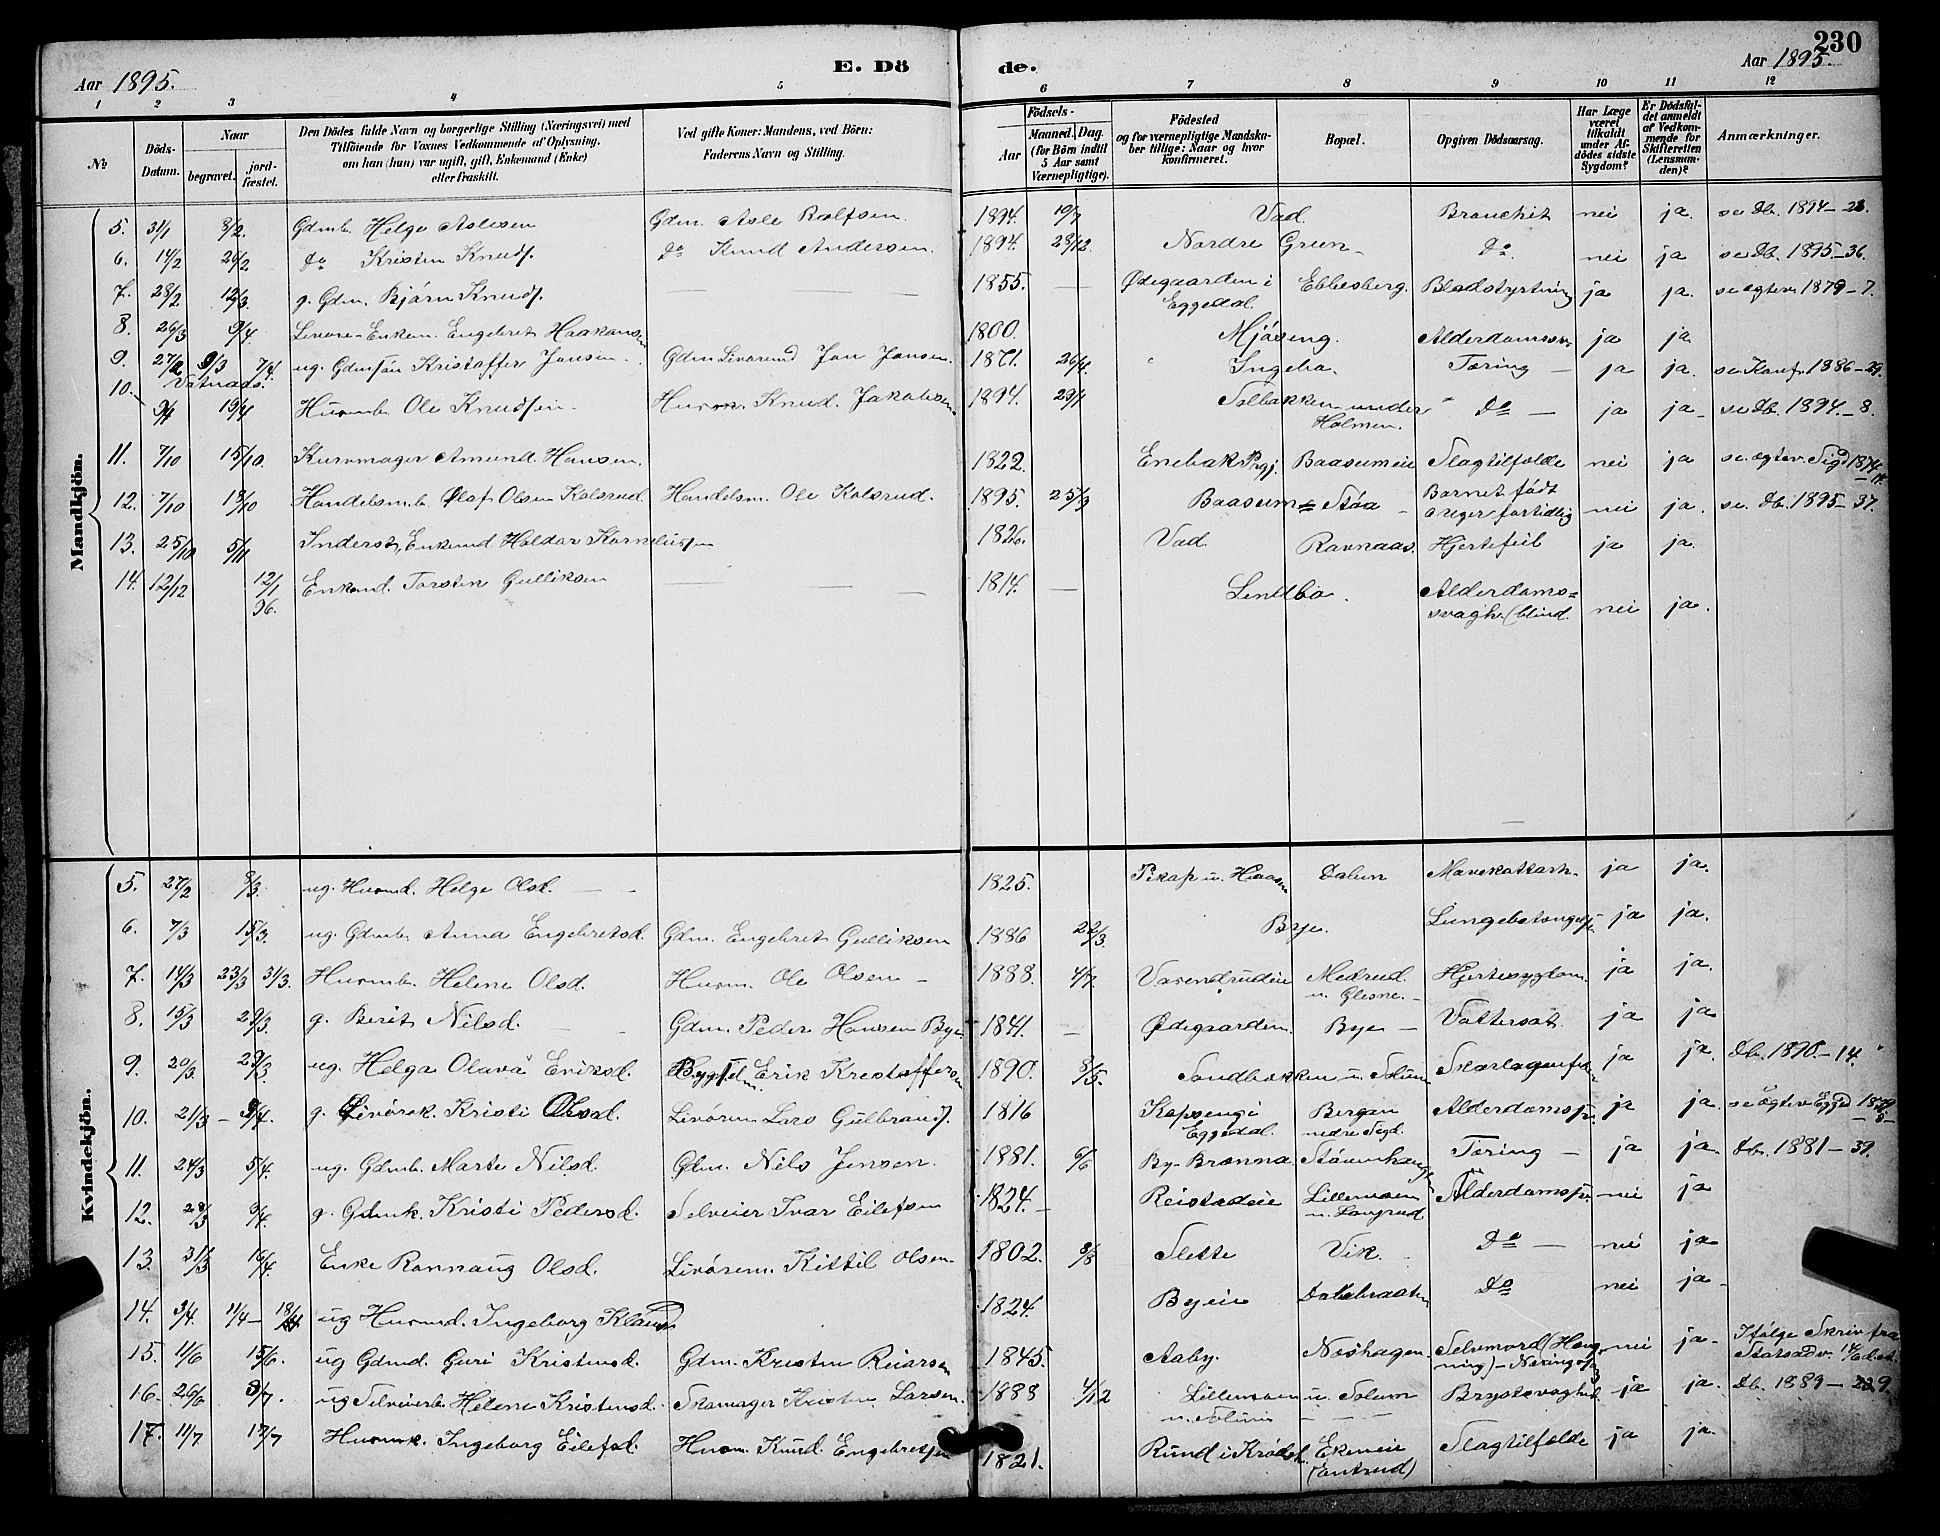 230
Aar 1895.
E. Dö
de.
Aar 1895.
1 2 3 4 5 6 7 8 9 10 11 12
№
Döds-Datum.
Naar
begravet.
jord-fæstet.
Den Dödes fulde Navn og borgerlige Stilling (Næringsvei) med
Tilföiende for Voxnes Vedkommende af Oplysning,
om han (hun) var ugift, gift, Enkemand (Enke)
eller fraskilt.
Ved gifte Koner: Mandens, ved Börn:
Faderens Navn og Stilling.
Födsels-
Aar
Maaned. Dag.
(for Börn indtil
5 Aar samt
Værnepligtige).
Födested
og for værnepligtige Mandska-
ber tillige: Naar og hvor
konfirmeret.
Bopæl.
Opgiven Dödsaarsag.
Har Læge
været
tilkaldt
under Af-
dödes sidste
Sygdom?
Er Dödsfal-
det anmeldt
af Vedkom-
mende for
Skifteretten
(Lensman-
den)?
Anmærkninger.
Mandkjön.
5. 31/1 8/2 Gdmb. Helge Aslesen Gdm. Asle Rolfsen. 1894. 10/7 Vad. Bronchit nei ja. se Db. 1894-23.
6. 14/2 26/2 do Kristen Knuds. do Knud Andersen. 1894. 28/12. Nordre Green Do. nei ja se Db. 1895-36.
7. 28/2 12/3. g. Gdm. Bjørn Knuds. 1855. Ødegaarden i Eggedal. Ebbesberg. Blodstyrtning ja ja. se ægtev. 1879-7.
8. 26/3 9/4. Enkem. Engebret Haakonsen 1800. Mjøseng. ja ja.
9. 27/2 9/3 7/4. ug. Gdmsøn Kristoffer Jonsen. Jon Jonsen. 1871. 26/4. Tæring ja ja. se Konf. 1886-29.
10. 19/4 Husmb. Ole Knudsen. Husm. Knud Jakobsen. 1894. 29/1 under Holmen. Do ja ja se Db. 1894-8.
11. 7/10 15/10. Kurvmager Amund Hansen. 1822. Enebak Prgj. Baasumeie Slagtilfælde nei ja se ægtev. Sigd 1874
12. 7/10 18/10 Handelsmb. Olaf Olsen Kolsrud. Handelsm. Ole Kolsrud. 1895. 25/9 Baasum Støa Barnet født 2 Uger fortidlig nei ja. se Db. 1895-37.
13. 25/10 5/11 Inderst, Enkemd. Haldor Korneliussen 1826. Vad. Ravnaas. Hjertefeil ja ja.
14. 12/12 12/1 96. Enkemd. Torsten Gulliksen 1814. Lindbo. Alderdoms-svagh. (blind. nei ja.
Kvindekjön.
5. 27/2 8/3. ug. Husmd. Helge Olsd. 1825. Dalen ja ja.
6. 7/3 15/3. ug. Gdmb. Anna Engebretsd. Gdm. Engebret Gulliksen 1886 22/3. Bye. ja ja.
7. 14/3 23/3 31/3. Husmb. Helene Olsd. Husm. Ole Olsen 1888. 4/7. Medrud u. Glesne. Hjertesygdom ja ja.
8. 15/3 29/3. g. Berit Nilsd. Gdm. Peder Hansen Bye 1841. Ødegaarden. Bye Vattersot. ja ja
9. 20/3. 29/3. ug. Helga Olava Eriksd. Erik Kristoffersen 1890. 8/5. ja ja. Db. 1890-14.
10. 21/3 9/4. g. Kristi Olsd. Lars Gulbrands. 1816 Kopseng i Eggedal. Bergan nedre Sigd. ja ja. se Ægtev. Eggd 1879
11. 24/3 5/4. ug. Gdmb. Marte Nilsd. Gdm. Nils Jensen. 1881. 6/6 Tæring ja ja. Db. 1881-39.
12. 28/3 9/4. g. Gdmk. Kristi Pedersd. Selveier Ivar Eilefsen 1824. Reistadeie Lillemoen nei ja
13. 31/3 16/4. Enke Rannaug Olsd. Kittil Olsen 1802. 9/8 Slette Vik. Do nei ja
14. 3/4. 11/4 18/4 ug Husmd. Ingeborg Klausd 1824. Byeie Dalebraaten Do nei ja
15. 11/6 15/6. ug Gdmd. Guri Kristensd. Gdm. Kristen Reiarsen 1845. Aaby. Noshagen Selvmord (Hængning) nei ja Ifølge Skriv fra Statsadv.
16. 26/6 9/7. ug Selveierb. Helene Kristensd. Skomager Kristen Larsen. 1888 4/12 Lillemoen u. Solum Brystsvaghed ja ja. Db. 1889
17. 11/7 17/7 Husmk. Ingeborg Eilefsd. Husm. Knud Engebretsen 1821. Rund i Krødsh. Ekeneie Slagtilfælde ja ja.